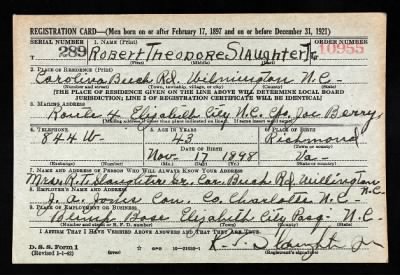 REGISTRATION CARD—(Men born on or after February 17, 1897 and on or before December 31, 1921)
SERIAL NUMBER 1. NAME (Print) ORDER NUMBER
289 ROBERT THEODORE SLAUGHTER Jr. 10955
2. PLACE OF RESIDENCE (Print)
Carolina Beach Rd. Wilmington N.C.
(Number and street) (Town, township, village, or city) (County) (State)
[THE PLACE OF RESIDENCE GIVEN ON THE LINE ABOVE WILL DETERMINE LOCAL BOARD
JURISDICTION; LINE 2 OF REGISTRATION CERTIFICATE WILL BE IDENTICAL]
3. MAILING ADDRESS
Route 4 Elizabeth City N.C. % Joe Berry
[Mailing address if other than place indicated on line 2. If same insert word same]
4. TELEPHONE 5. AGE IN YEARS 6. PLACE OF BIRTH
844W 43 Richmond
DATE OF BIRTH (Town or county)
Nov. 17 1898 Va-
(Exchange) (Number) (Mo.) (Day) (Yr.) (State or country)
7. NAME AND ADDRESS OF PERSON WHO WILL ALWAYS KNOW YOUR ADDRESS
Mrs. R.T. Slaughter Sr. Car. Beach Rd. Willington N-C
8. EMPLOYER'S NAME AND ADDRESS
J. A. Jones Con. Co. Charlotte N-C-
9. PLACE OF EMPLOYMENT OR BUSINESS
Blimp Base Elizabeth City Pasq- N-C-
(Number and street or R. F. D. number) (Town) (County) (State)
I AFFIRM THAT I HAVE VERIFIED ABOVE ANSWERS AND THAT THEY ARE TRUE.
D. S. S. Form 1
(Revised 1-1-42) (over)
R. T. Slaughter Jr